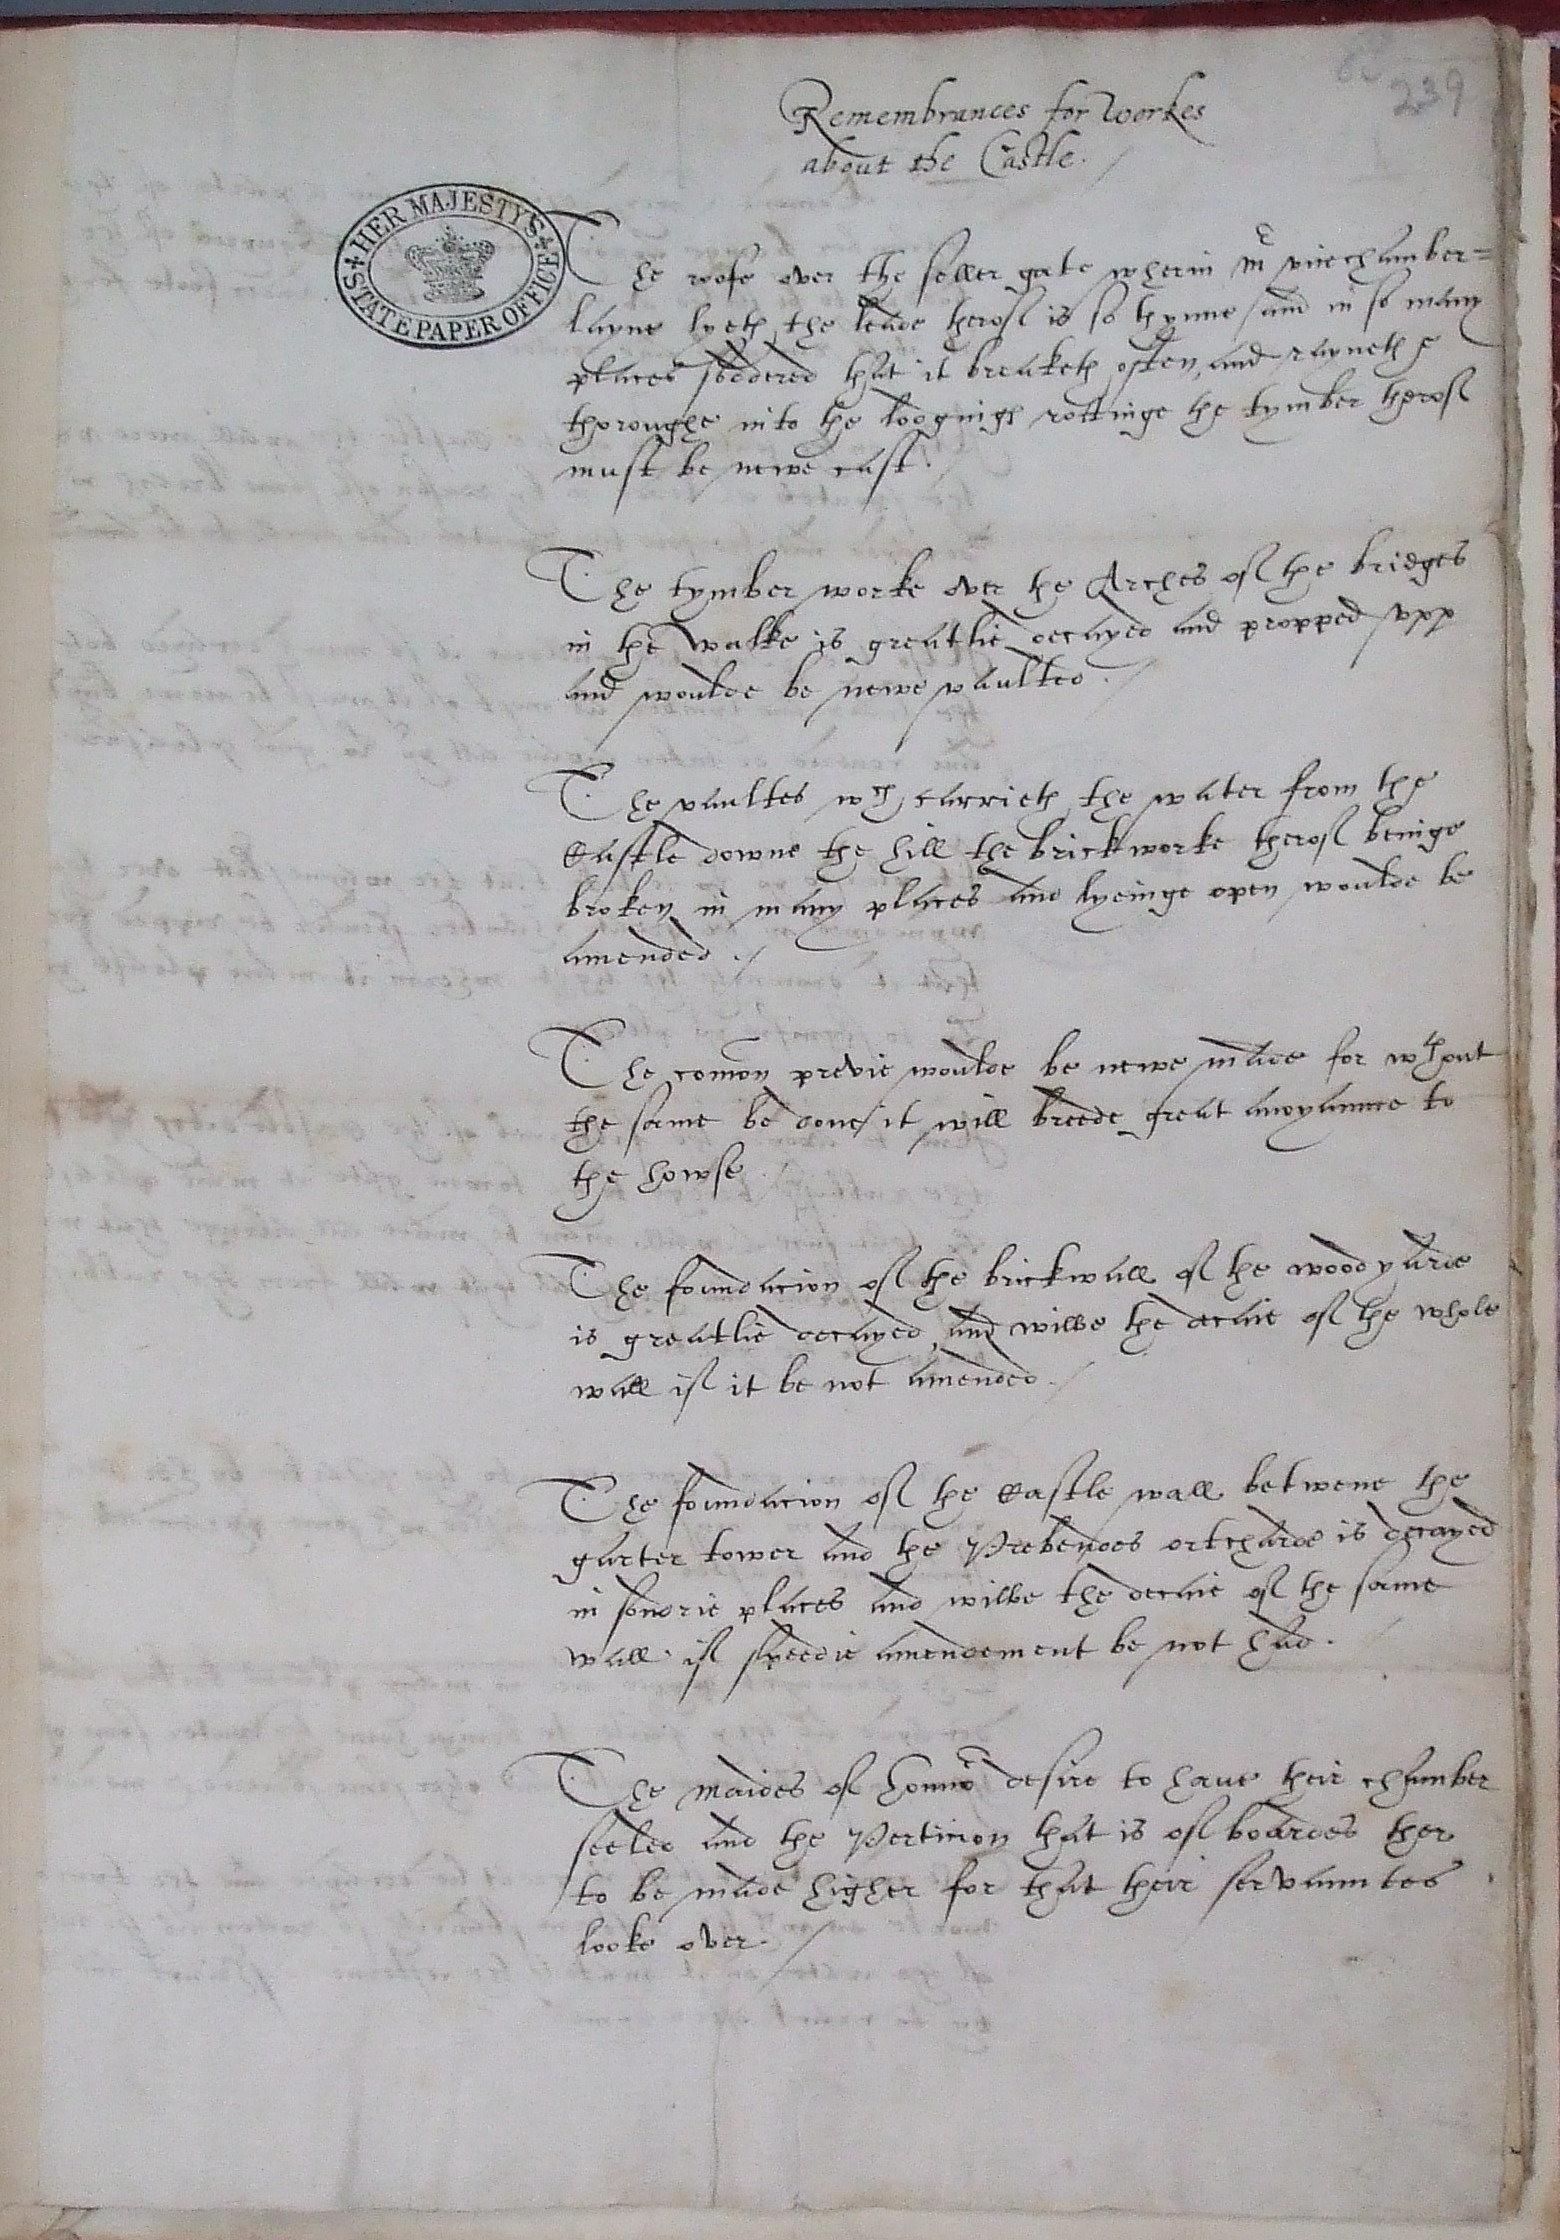 239
Remembrances for workes
about the Castle.
HER MAJESTYS STATE PAPER OFFICE
The rofe over the seller gate wherin mr vicechamber=
layne lyeth, the leade therof is so thynne and in so many
places sodered that it breaketh often, and rayneth
thoroughe into the lodginge rottinge the tymber therof
must be newe cast.
The tymber worke over the Arches of the bridges
in the walke is greatlie decayed and propped upp
and woulde be newe vaulted.
The vaultes wch carrieth the water from the
Castle downe the hill the brickworke therof beinge
broken in many places and lyeinge open woulde be
amended.
The comon previe woulde be newe made for wthout
the same be done it will breede great anoyannce to
the howse
The foundacion of the brickwall of the woodyarde
is greatlie decayed and wilbe the decaie of the whole
wall if it be not amended.
The foundacion of the Castle wall betwene the
garter tower and the Prebendes ortcharde is decayed
in sondrie places and wilbe the decaie of the same
wall if speedie amendement be not had.
The maides of honnor desire to have their chamber
seeled and the Perticion that is of boardes ther
to be made higher for that their servauntes
looke over.